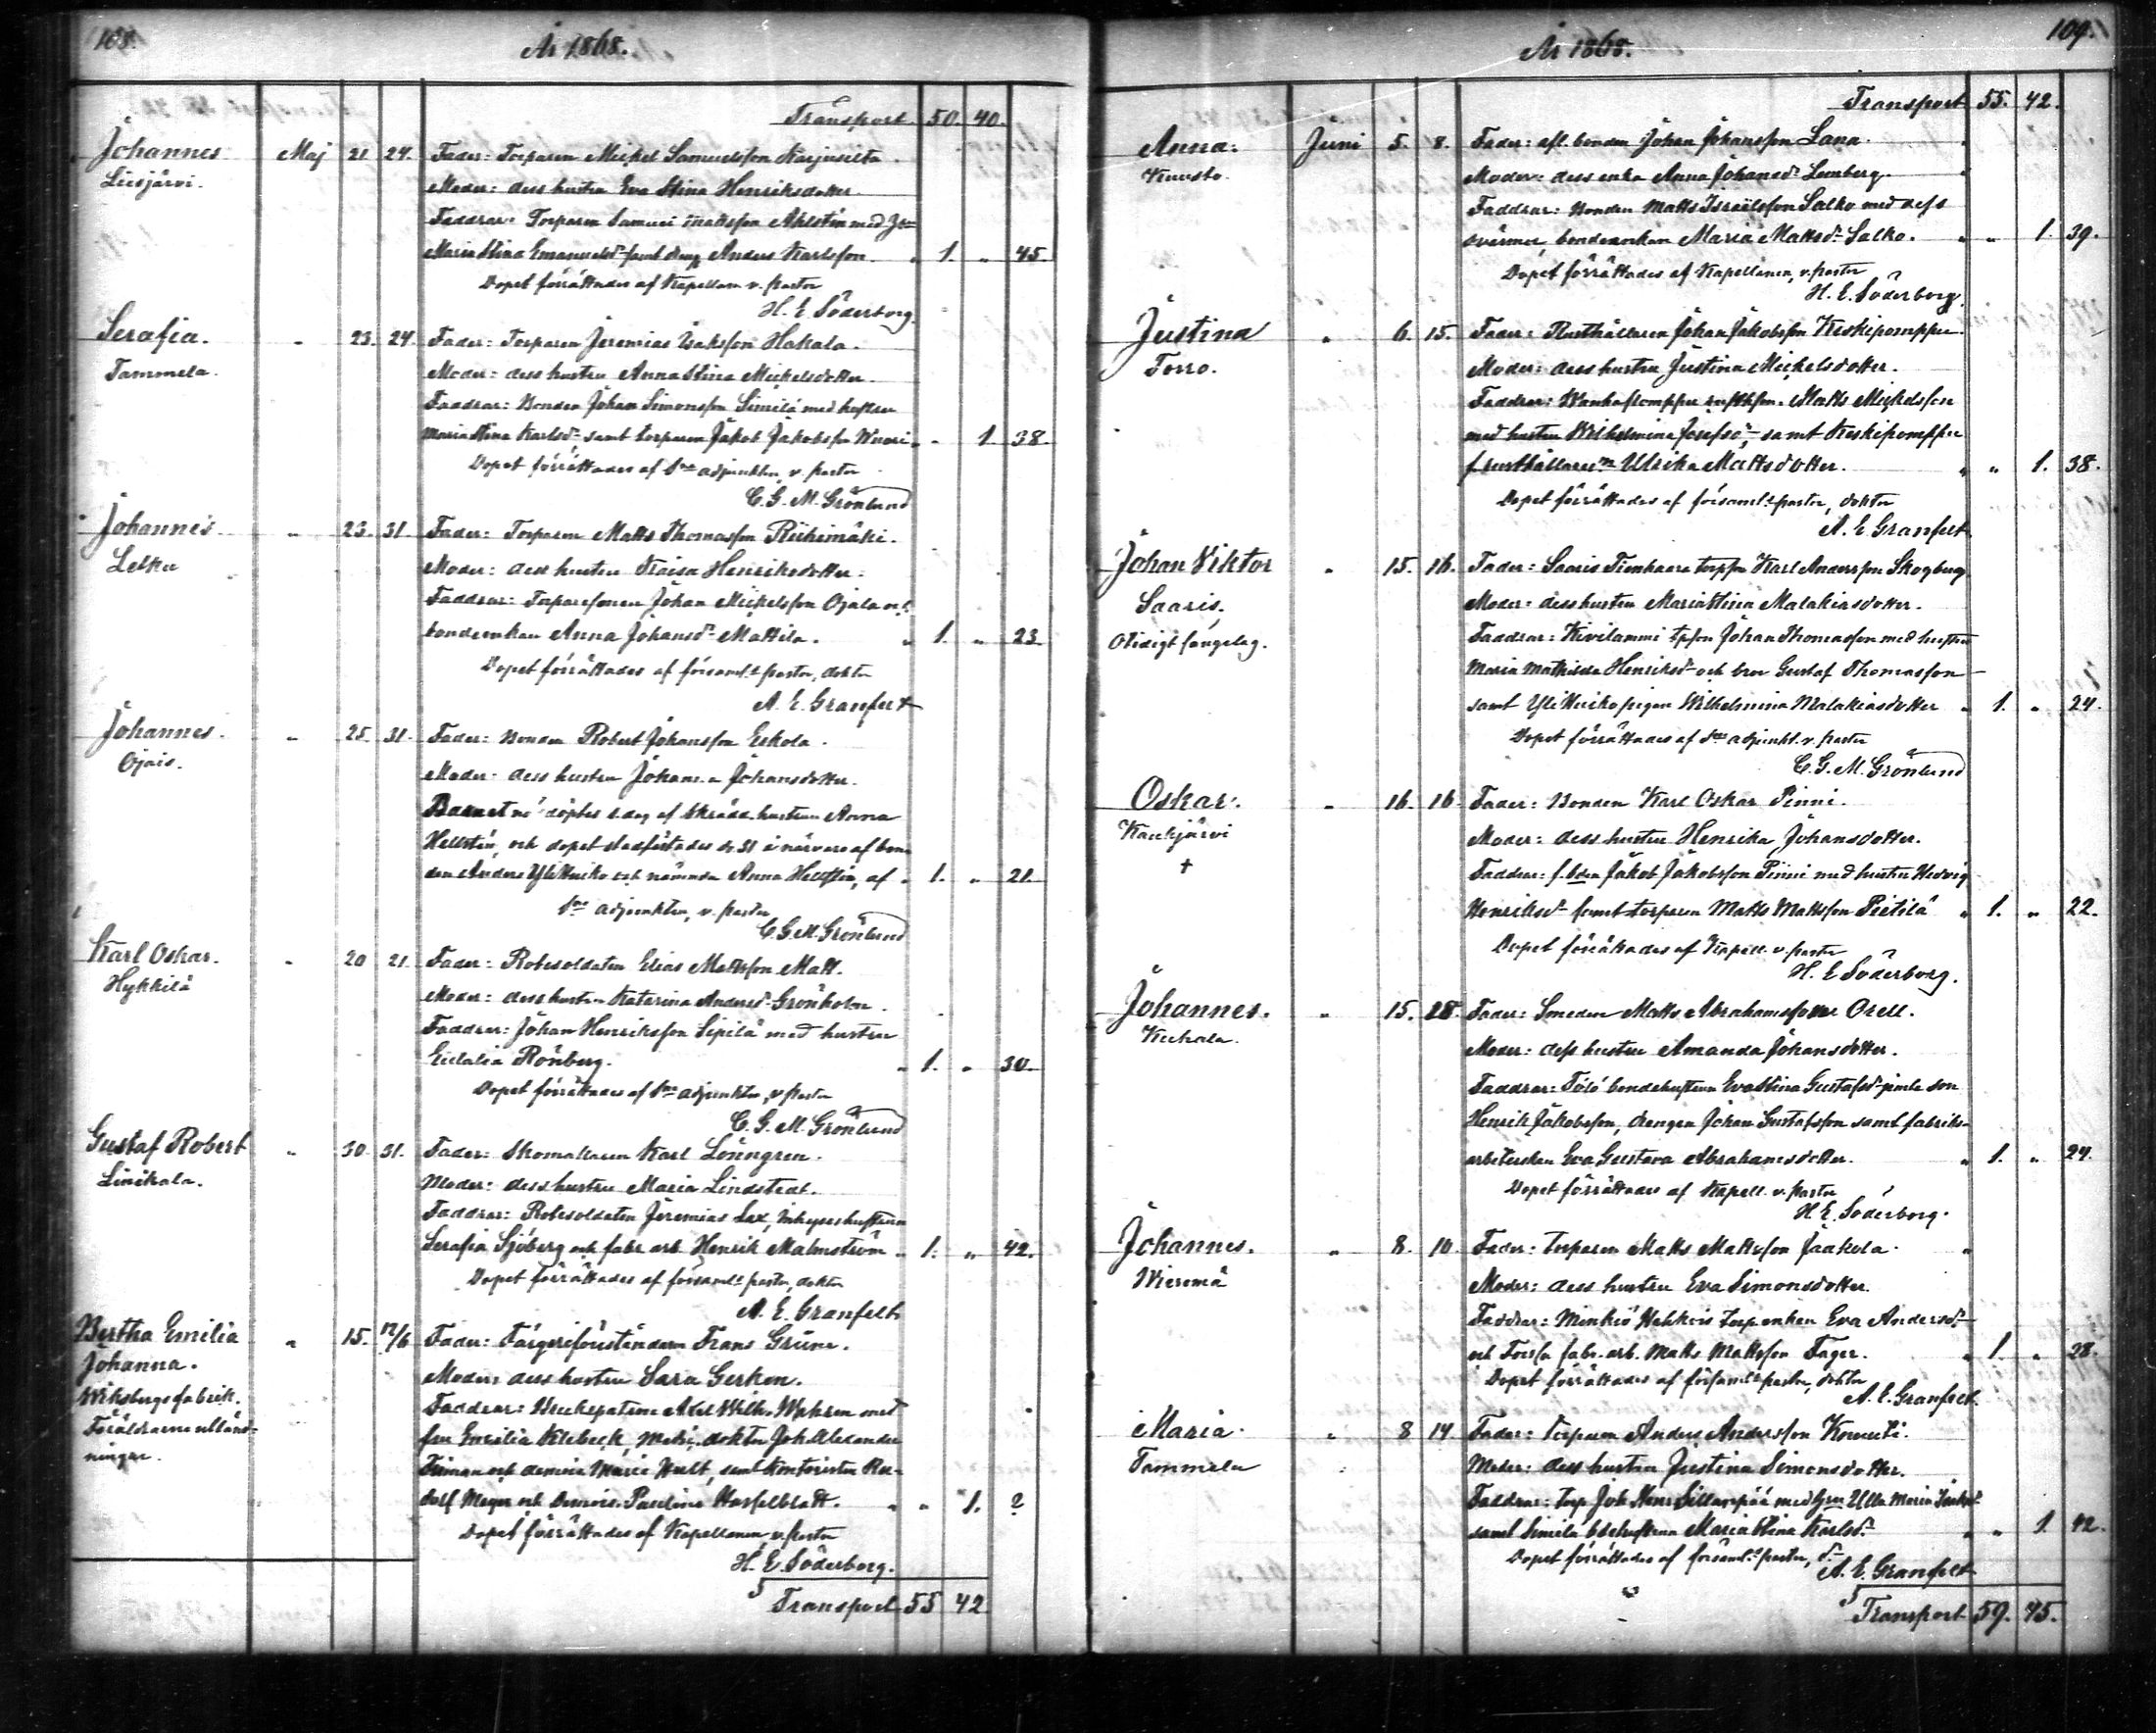 108.
År 1868.
Transport 50. 40.
Johannes Maj 21 24. Fader: Torparen Mickel Samuelsson Karjuselta.
Liesjärvi. Moder: dess hustru Eva Stina Henriksdotter.
Faddrar: Torparen Samuel Mattsson Ahlstén med
Maria Stina Emanuelsd. samt dreng Anders Karlsson. " 1. " 45.
Dopet förrättades af Kapellanen v. pastor
H. E. Söderborg.
Serafia. " 23. 24. Fader: Torparen Jeremias Isaksson Hakala.
Tammela. Moder: dess hustru Anna Stina Mickelsdotter.
Faddrar: Bonden Johan Simonsson Similä med hustru
Maria Stina Karlsd. samt torparen Jakob Jakobsson Wuori " 1. 38.
Dopet förrättades af adjunkten, v. pastor
C. G. M. Grönlund
Johannes " 23. 31. Fader: Torparen Matts Thomasson Riihimäki.
Letku Moder: dess hustru Kaisa Henriksdotter.
Faddrar: Torparesonen Johan Mickelsson Ojala och
bondeenkan Anna Johansd. Mattila. " 1. " 23.
Dopet förrättades af församl. pastor, doktor
A. E. Granfelt
Johannes. " 25. 31. Fader: Bonden Robert Johansson Eskola.
Ojais. Moder: dess hustru Johanna Johansdotter.
Barnet döptes s. dag af skrädd. hustrun Anna
Hellstén, och dopet stadfästades d. 31 i närvaro af bon-
den Anders YliKuiko och nämnda Anna Hellstén, af " 1. " 21.
adjunkten, v. pastor
C. G. M. Grönlund
Karl Oskar. " 20 21. Fader: Rotesoldaten Elias Mattsson Matt.
Hykkilä Moder: dess hustru Katarina Andersd. Grönholm.
Faddrar: Johan Henriksson Sipilä med hustru
Eulalia Rönberg. " 1. " 30.
Dopet förrättades af adjunkten, v. pastor
C. G. M. Grönlund
Gustaf Robert " 30 31. Fader: Skomakaren Karl Lönngren.
Linikala. Moder: dess hustru Maria Lindstedt.
Faddrar: Rotesoldaten Jeremias Lax, Inhyseshustrun
Serafia Sjöberg och fabr. arb. Henrik Malmström " 1. " 42.
Dopet förrättades af församl. pastor, doktor
A. E. Granfelt
Bertha Emilia " 15. 12/6 Fader: Färgeriföreståndaren Frans Grüne.
Johanna. Moder: dess hustru Sara Gerken.
Wiksbergs fabrik. Faddrar: Brukspatron Axel Wilh. Wahren med
Föräldrarne utländ- fru Emilia Klebeck, Medic. doktor Joh. Alexander
ningar. och demois. Marie Hult, samt Kontoristen Ru-
dolf Meyer och Demois. Pauline Hasselblatt. " " 1. ?
Dopet förrättades af Kapellanen, v. pastor
H. E. Söderborg.
Transport 55 42
109.
År 1868.
Transport 55. 42.
Anna. Juni 5. 8. Fader: afl. bonden Johan Johansson Lana.
Kuusto. Moder: dess enka Anna Johansd. Lemberg.
Faddrar: Bonden Matts Israelsson Salko med dess
svärmor, bondeenkan Maria Mattsd. Salko. " " 1. 39.
Dopet förrättades af Kapellanen, v. pastor
H. E. Söderborg.
Justina " 6. 15. Fader: Rusthållaren Johan Jakobsson Keskipomppu.
Torro. Moder: dess hustru Justina Mickelsdotter.
Faddrar: Wanhapomppu Matts Mickelsson
med hustru Wilhelmina Josefsd. samt Keskipomppu
f. rusthållaren Ulrika Mattsdotter. " " 1. 38.
Dopet förrättades af församl. pastor, doktor
A. E. Granfelt
Johan Viktor " 15. 16. Fader: Saaris Tienhaara Karl Andersson Skogberg
Saaris. Moder: dess hustru Maria Stina Malakiasdotter.
Otidigt sängelag. Faddrar: Kivilammi Johan Thomasson med hustru
Maria Mathilda Henriksd. och bror Gustaf Thomasson
samt YliKuiko pigan Wilhelmina Malakiasdotter " 1. " 24.
Dopet förrättades af adjunkt. v. pastor
C. G. M. Grönlund
Oskar. " 16. 16. Fader: Bonden Karl Oskar Pinni.
Kaukjärvi Moder: dess hustru Henrika Johansdotter.
+ Faddrar: f. bden Jakob Jakobsson Pinni med hustru Hedvig
Henriksd. samt torparen Matts Mattsson Pietilä " 1. " 22.
Dopet förrättades af Kapell. v. pastor
H. E. Söderborg.
Johannes. " 15. 28. Fader: Smeden Matts Abrahamsson Orell.
Kuhala. Moder: dess hustru Amanda Johansdotter.
Faddrar: Tölö bondehustrun Eva Stina Gustafsd. jemte son
Henrik Jakobsson, drengen Johan Gustafsson samt fabriks-
arbeterskan Eva Gustava Abrahamsdotter. " 1. " 24.
Dopet förrättades af Kapell. v. pastor
H. E. Söderborg.
Johannes. " 8. 10. Fader: torparen Matts Mattsson Jaakola.
Wieremä Moder: dess hustru Eva Simonsdotter.
Faddrar: Minkiö torp. enkan Eva Andersd.
och Forssa fabr. arb. Matts Mattsson Fager. " 1. " 28.
Dopet förrättades af församl. pastor, doktor
A. E. Granfelt.
Maria. " 8 14 Fader: torparen Anders Andersson
Tammela Moder: dess hustru Justina Simonsdotter.
Faddrar: torp. Joh. Henr. Sillanpää med hru Ulla Maria
samt Similä bdehustrun Maria Stina Karlsd. " " 1. 42.
Dopet förrättades af församl. pastor, d.
A. E. Granfelt
Transport 59. 45.